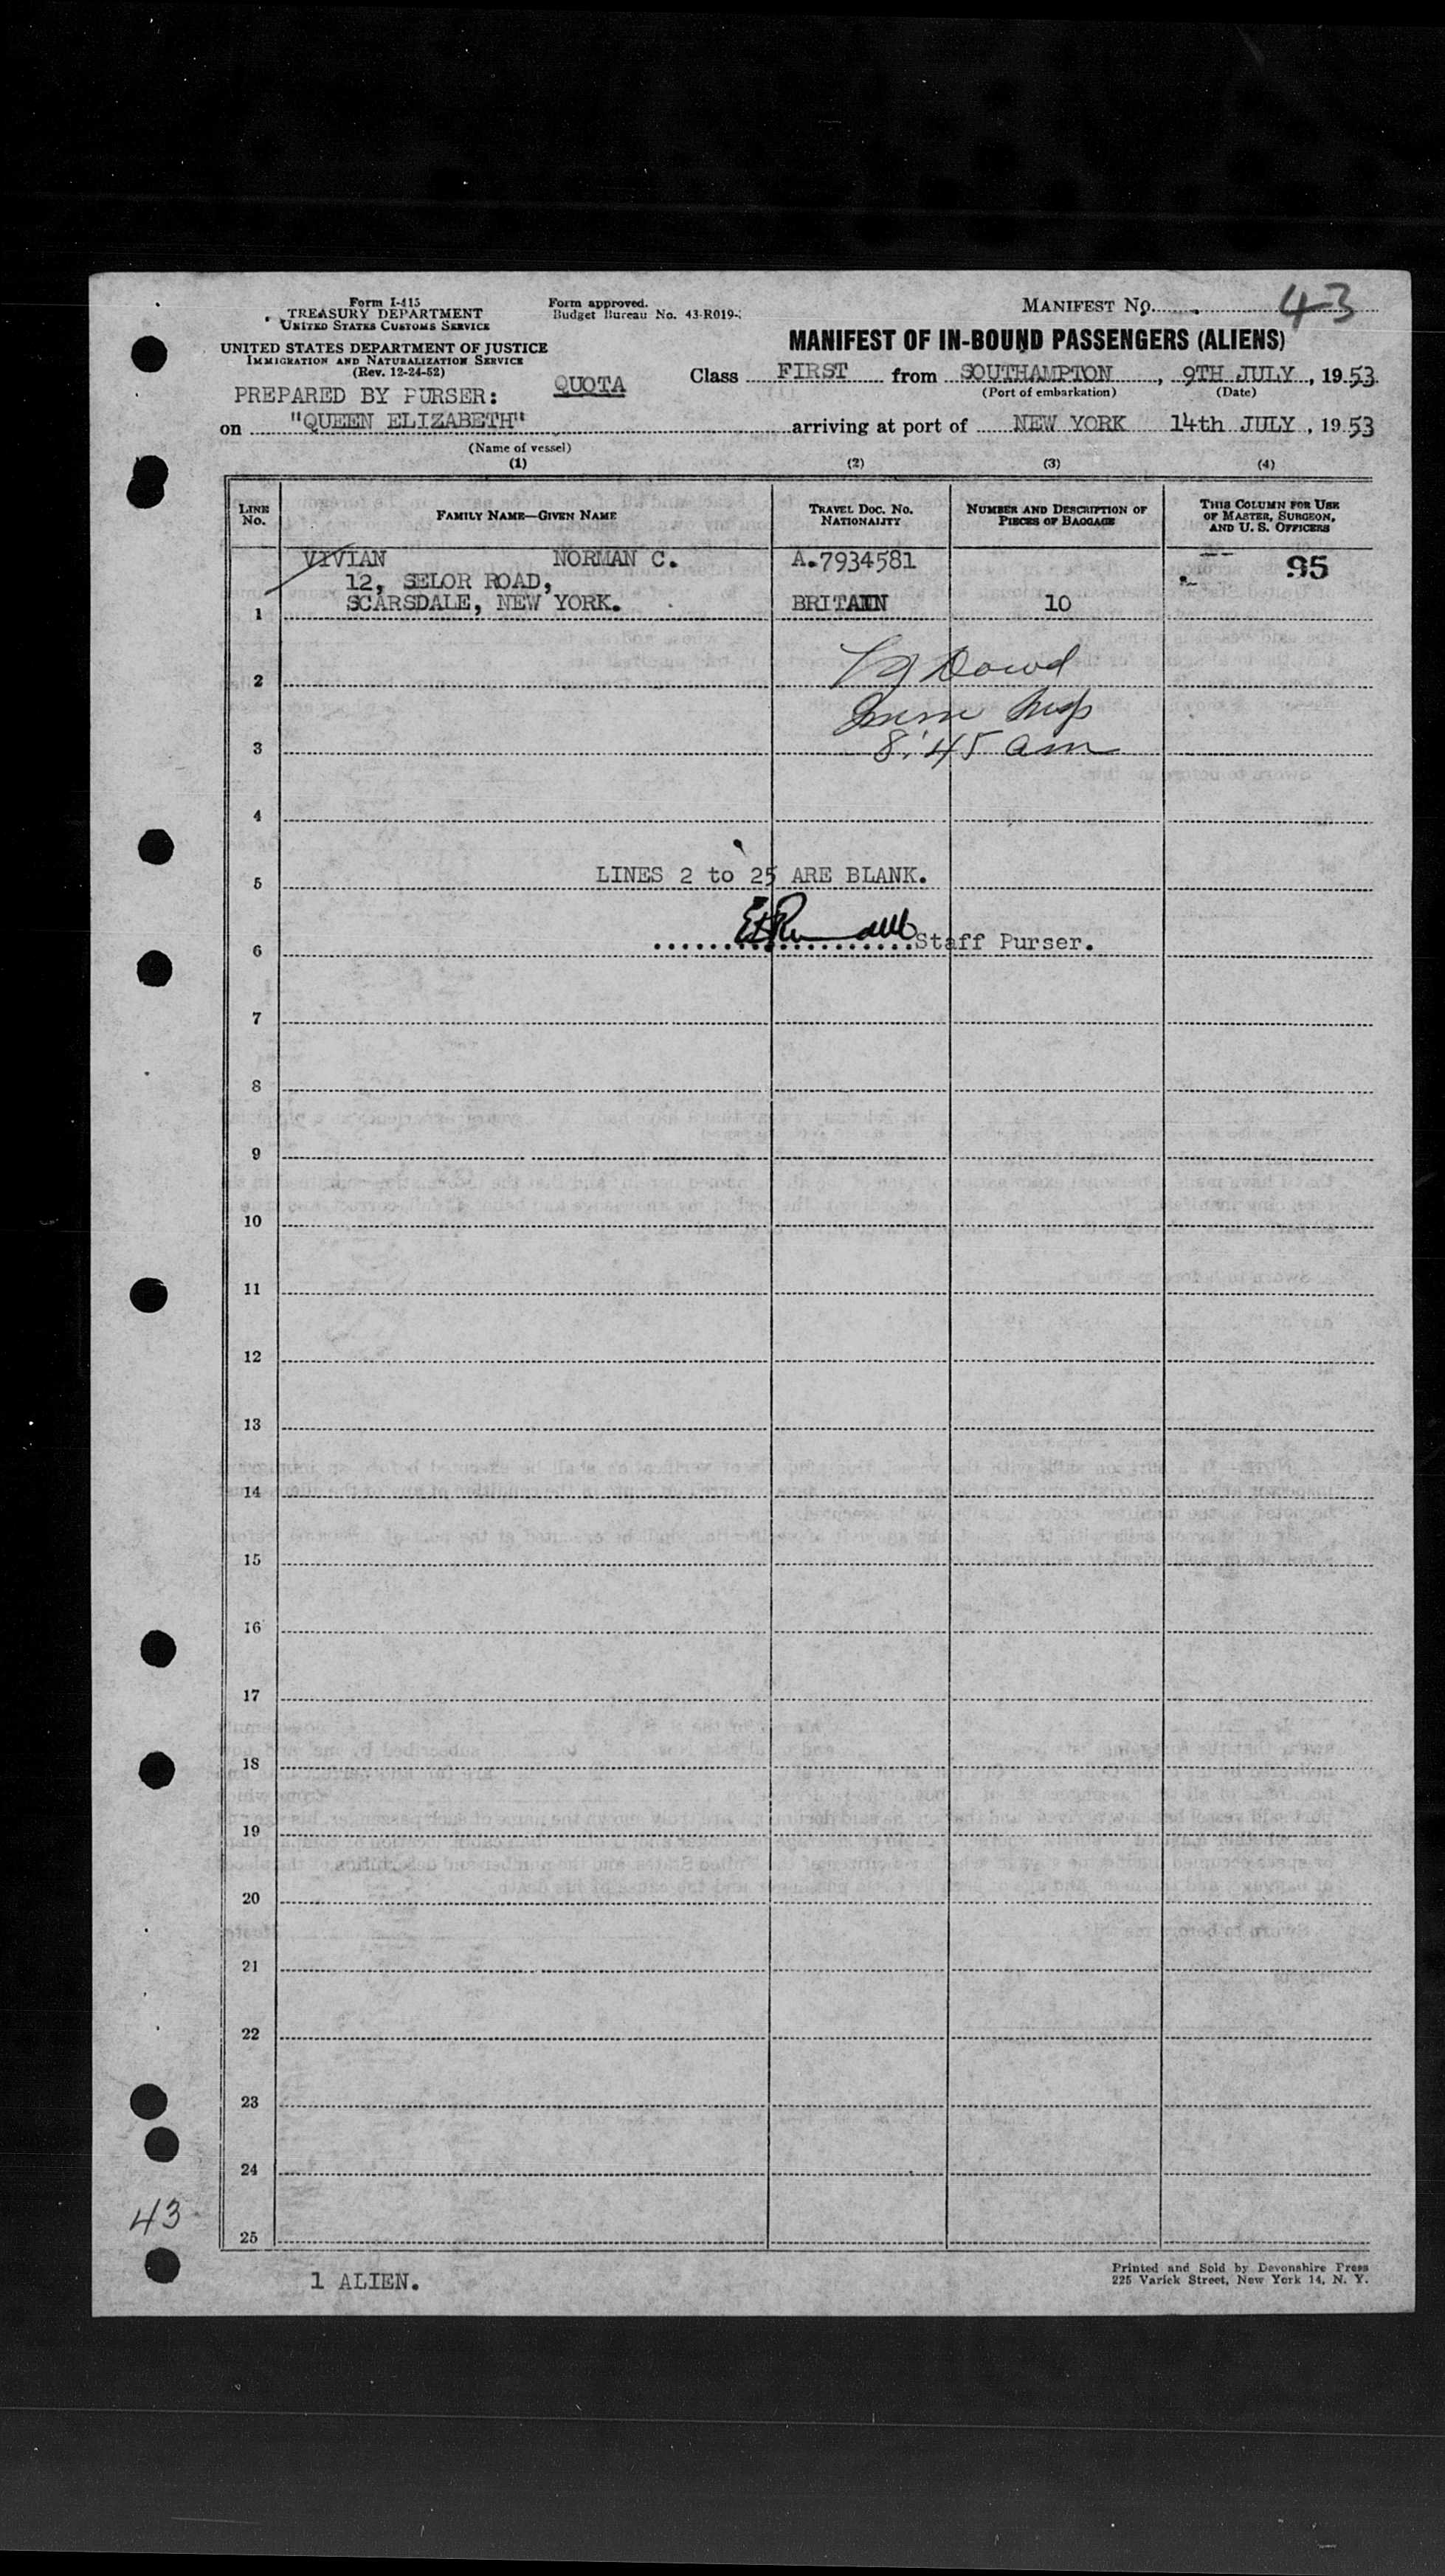 Form I-415
TREASURY DEPARTMENT
UNITED STATES CUSTOMS SERVICE
UNITED STATES DEPARTMENT OF JUSTICE
IMMIGRATION AND NATURALIZATION SERVICE
(Rev. 12-24-52)
Form approved.
Budget Bureau No. 43-R019-
MANIFEST NO. 43
MANIFEST OF IN-BOUND PASSENGERS (ALIENS)
PREPARED BY PURSER:
QUOTA
Class FIRST from SOUTHAMPTON, 9TH JULY, 1953
(Port of embarkation) (Date)
on "QUEEN ELIZABETH" arriving at port of NEW YORK 14th JULY, 1953
(Name of vessel)
(1) (2) (3) (4)
LINE No. FAMILY NAME—GIVEN NAME TRAVEL DOC. NO. NATIONALITY NUMBER AND DESCRIPTION OF PIECES OF BAGGAGE THIS COLUMN FOR USE OF MASTER, SURGEON, AND U. S. OFFICERS
VIVIAN NORMAN C. A.7934581 95
12, SELOR ROAD,
1 SCARSDALE, NEW YORK. BRITAIN 10
2 Dowd
3 Imm Insp
8:45 am
4
5 LINES 2 to 25 ARE BLANK.
6 Staff Purser.
7
8
9
10
11
12
13
14
15
16
17
18
19
20
21
22
23
24
25
43
1 ALIEN.
Printed and Sold by Devonshire Press
225 Varick Street, New York 14, N. Y.